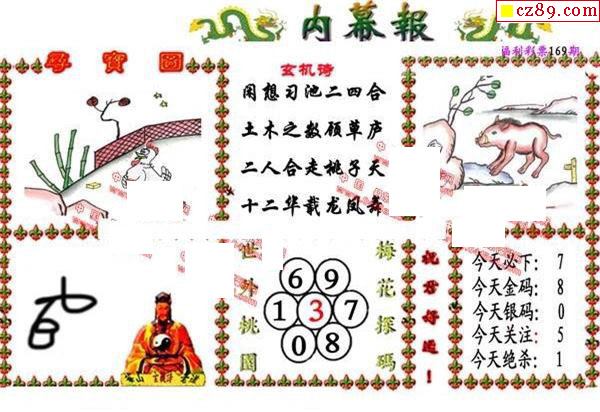 cz89.com
内幕報
福利彩票169期
尋寶圖
玄机诗
闲想习池二四合
土木之数顾草庐
二人合走桃子天
十二华载龙凤舞
世外桃園
梅花探碼
6 9
1 3 7
0 8
祝君好运！
今天必下：7
今天金码：8
今天银码：0
今天关注：5
今天绝杀：1